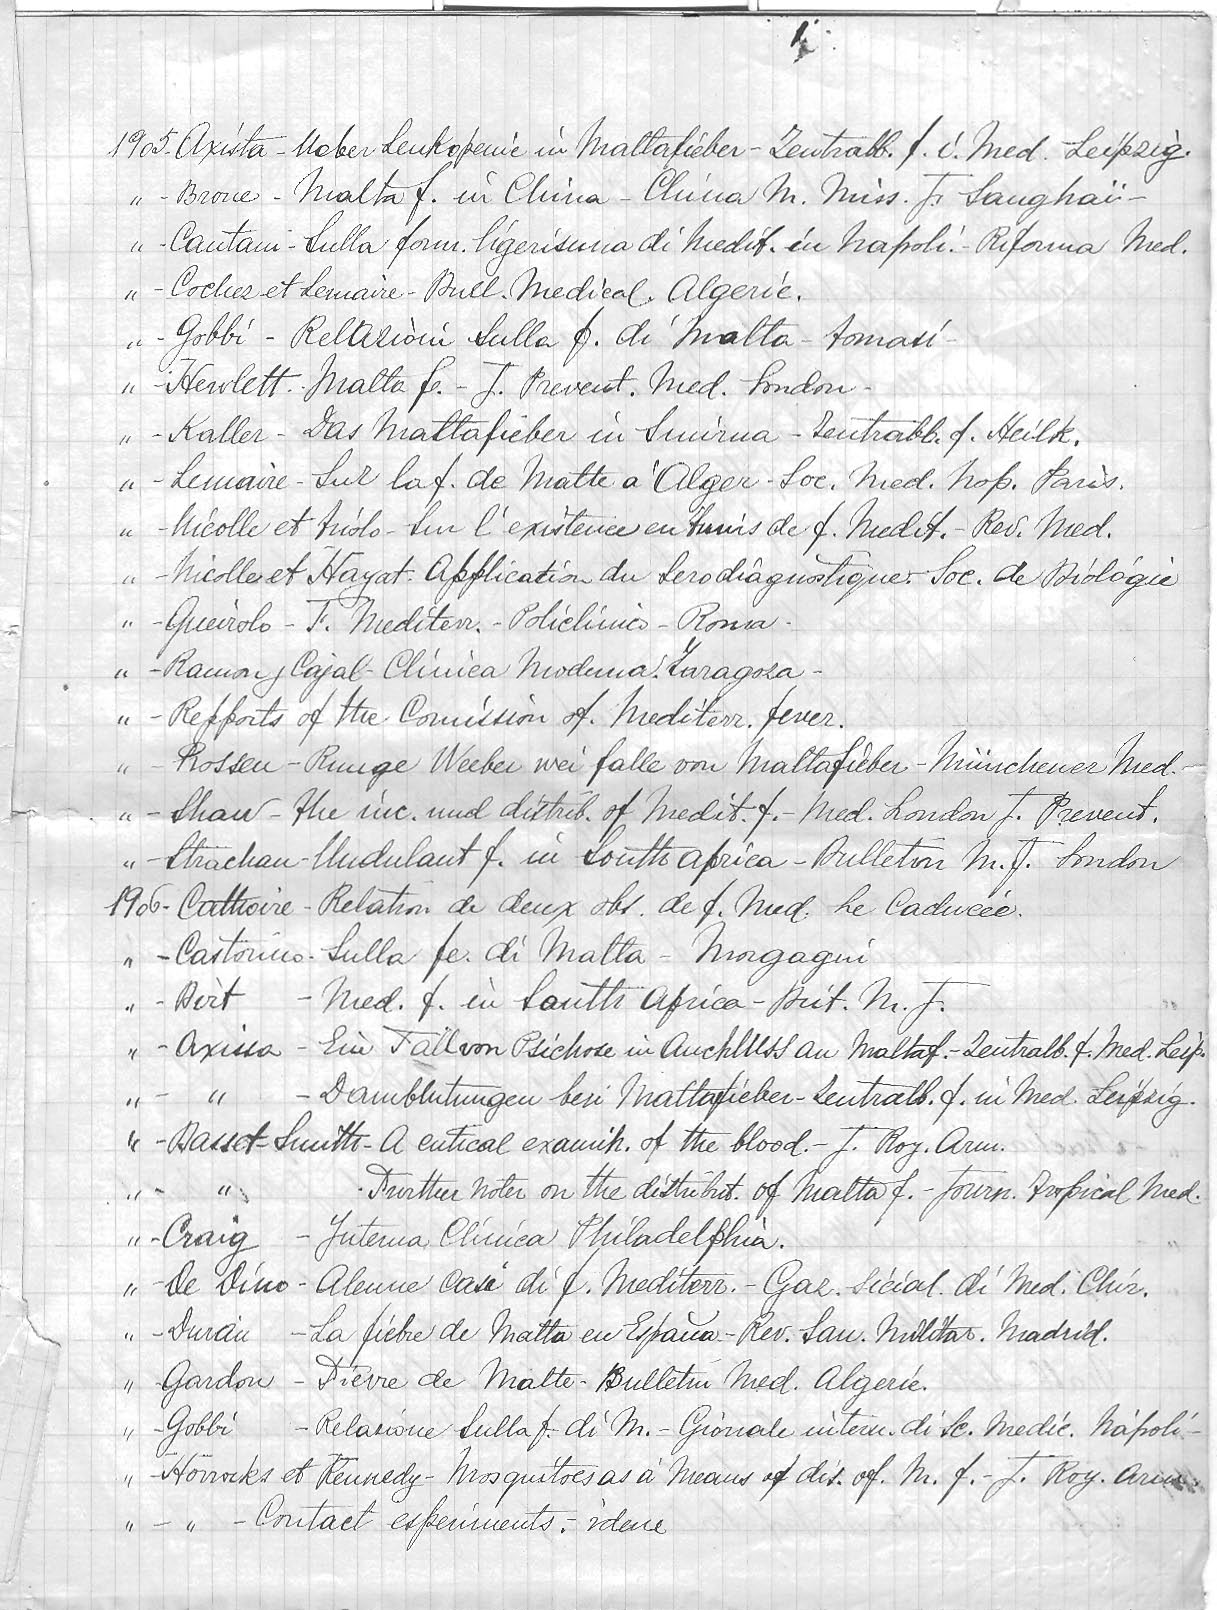 1.
1905- Axista - Ueber Leukopenie in Maltafieber - Zentralb. f. i. Med. Leipzig.
" - Brone - Malta f. in China - China M. Miss. J. Sanghaii -
" - Cantani - Sulla form. ligerisima di Medit. in Napoli. - Riforma Med.
" - Cochez et Lemaire - Bull. Medical. Algerie.
" - Gobbi - Relazioni sulla f. di Malta - Tomasi -
" - Hewlett. Malta fe. - J. Prevent. Med. London -
" - Kaller - Das Maltafieber in Smirna - Zentralbl. f. Heilk.
" - Lemaire - Sur la f. de Malte a Alger - Soc. Med. hop. Paris.
" - Nicolle et Triolo - Sur l'existence en Tunis de f. Medit. - Rev. Med.
" - Nicolle et Hayat. Application du Serodiagnostique - Soc. de Biologie
" - Queirolo - F. Mediterr. - Policlinico - Roma -
" - Ramon y Cajal - Clinica Moderna. Zaragoza -
" - Repports of the Comission of. Mediterr. fever.
" - Rossen - Runge Weeber wei falle von Maltafieber - Münchener Med. -
" - Shaw - the inc. und distrib. of Medit. f. - Med. London J. Prevent.
" - Strachan - Undulant f. in South Africa - Bulleton M. J. London
1906 - Cathoire - Relation de deux obs. de f. Med. Le Caducée.
" - Castorino - Sulla fe. di Malta - Morgagni
" - Birt - Med. f. in South Africa - Brit. M. J.
" - Axissa - Ein Fall von Psichose in Auchluss an Maltaf. - Zentralb. f. Med. Leip.
" - " - Darmblutungen bei Maltafieber - Zentralb. f. in Med. Leipzig.
" - Basset-Smith - A critical examih. of the blood. - J. Roy. Arm.
" - " - Further noter on the distribut. of Malta f. - Journ. Tropical Med.
" - Craig - Interna Clinica Philadelphia.
" - De Dino - Alcune Casi di f. Mediterr. - Gaz. Sicial. di Med. Chir.
" - Durán - La fiebre de Malta en España - Rev. San. Militar. Madrid.
" - Gardon - Fievre de Malte - Bulletin Med. Algerie.
" - Gobbi - Relasione Sulla f. di M. - Gionale intern. di Sc. Medic. Napoli -
" - Horrocks et Kennedy - Mosquitoes as a Means of dis. of. M. f. - J. Roy. Arm.
" - " - Contact esperiments. - idene